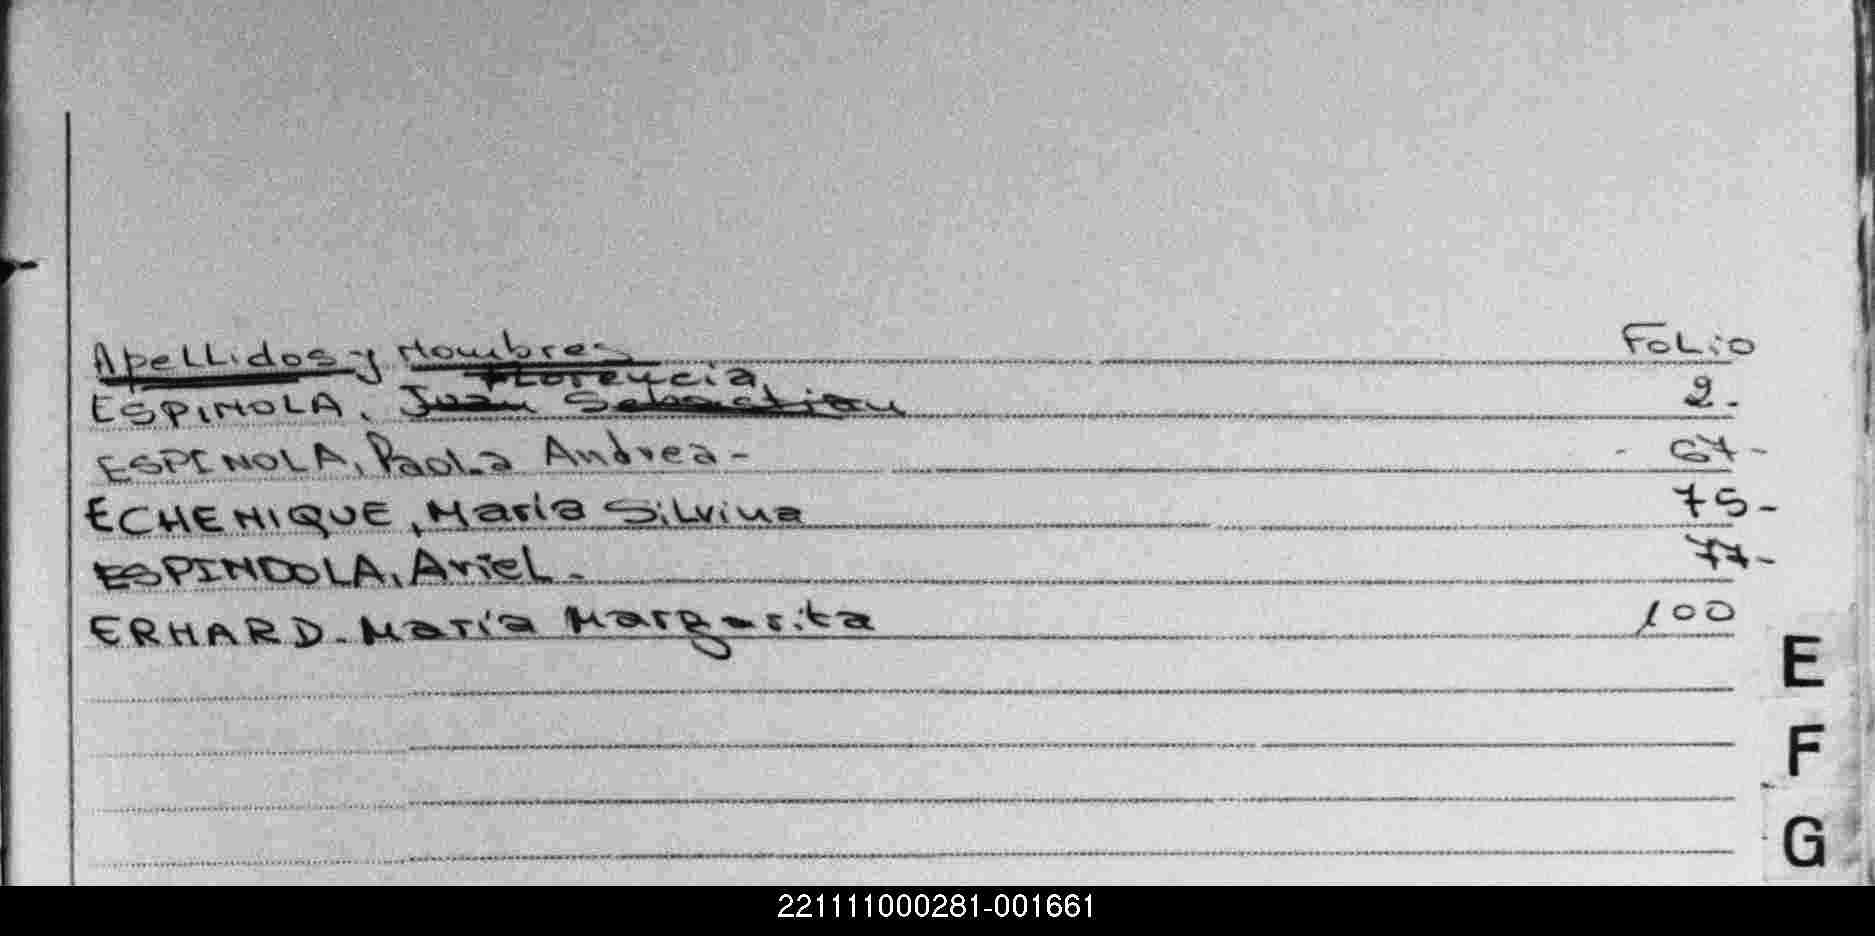 Apellidos y Nombres Folio
Florencia
ESPINOLA, Juan Sebastian 2.
ESPINOLA, Paola Andrea - - 67 -
ECHENIQUE, María Silvina 75 -
ESPINDOLA, Ariel. 77 -
ERHARD - María Margarita 100
E
F
G
221111000281-001661